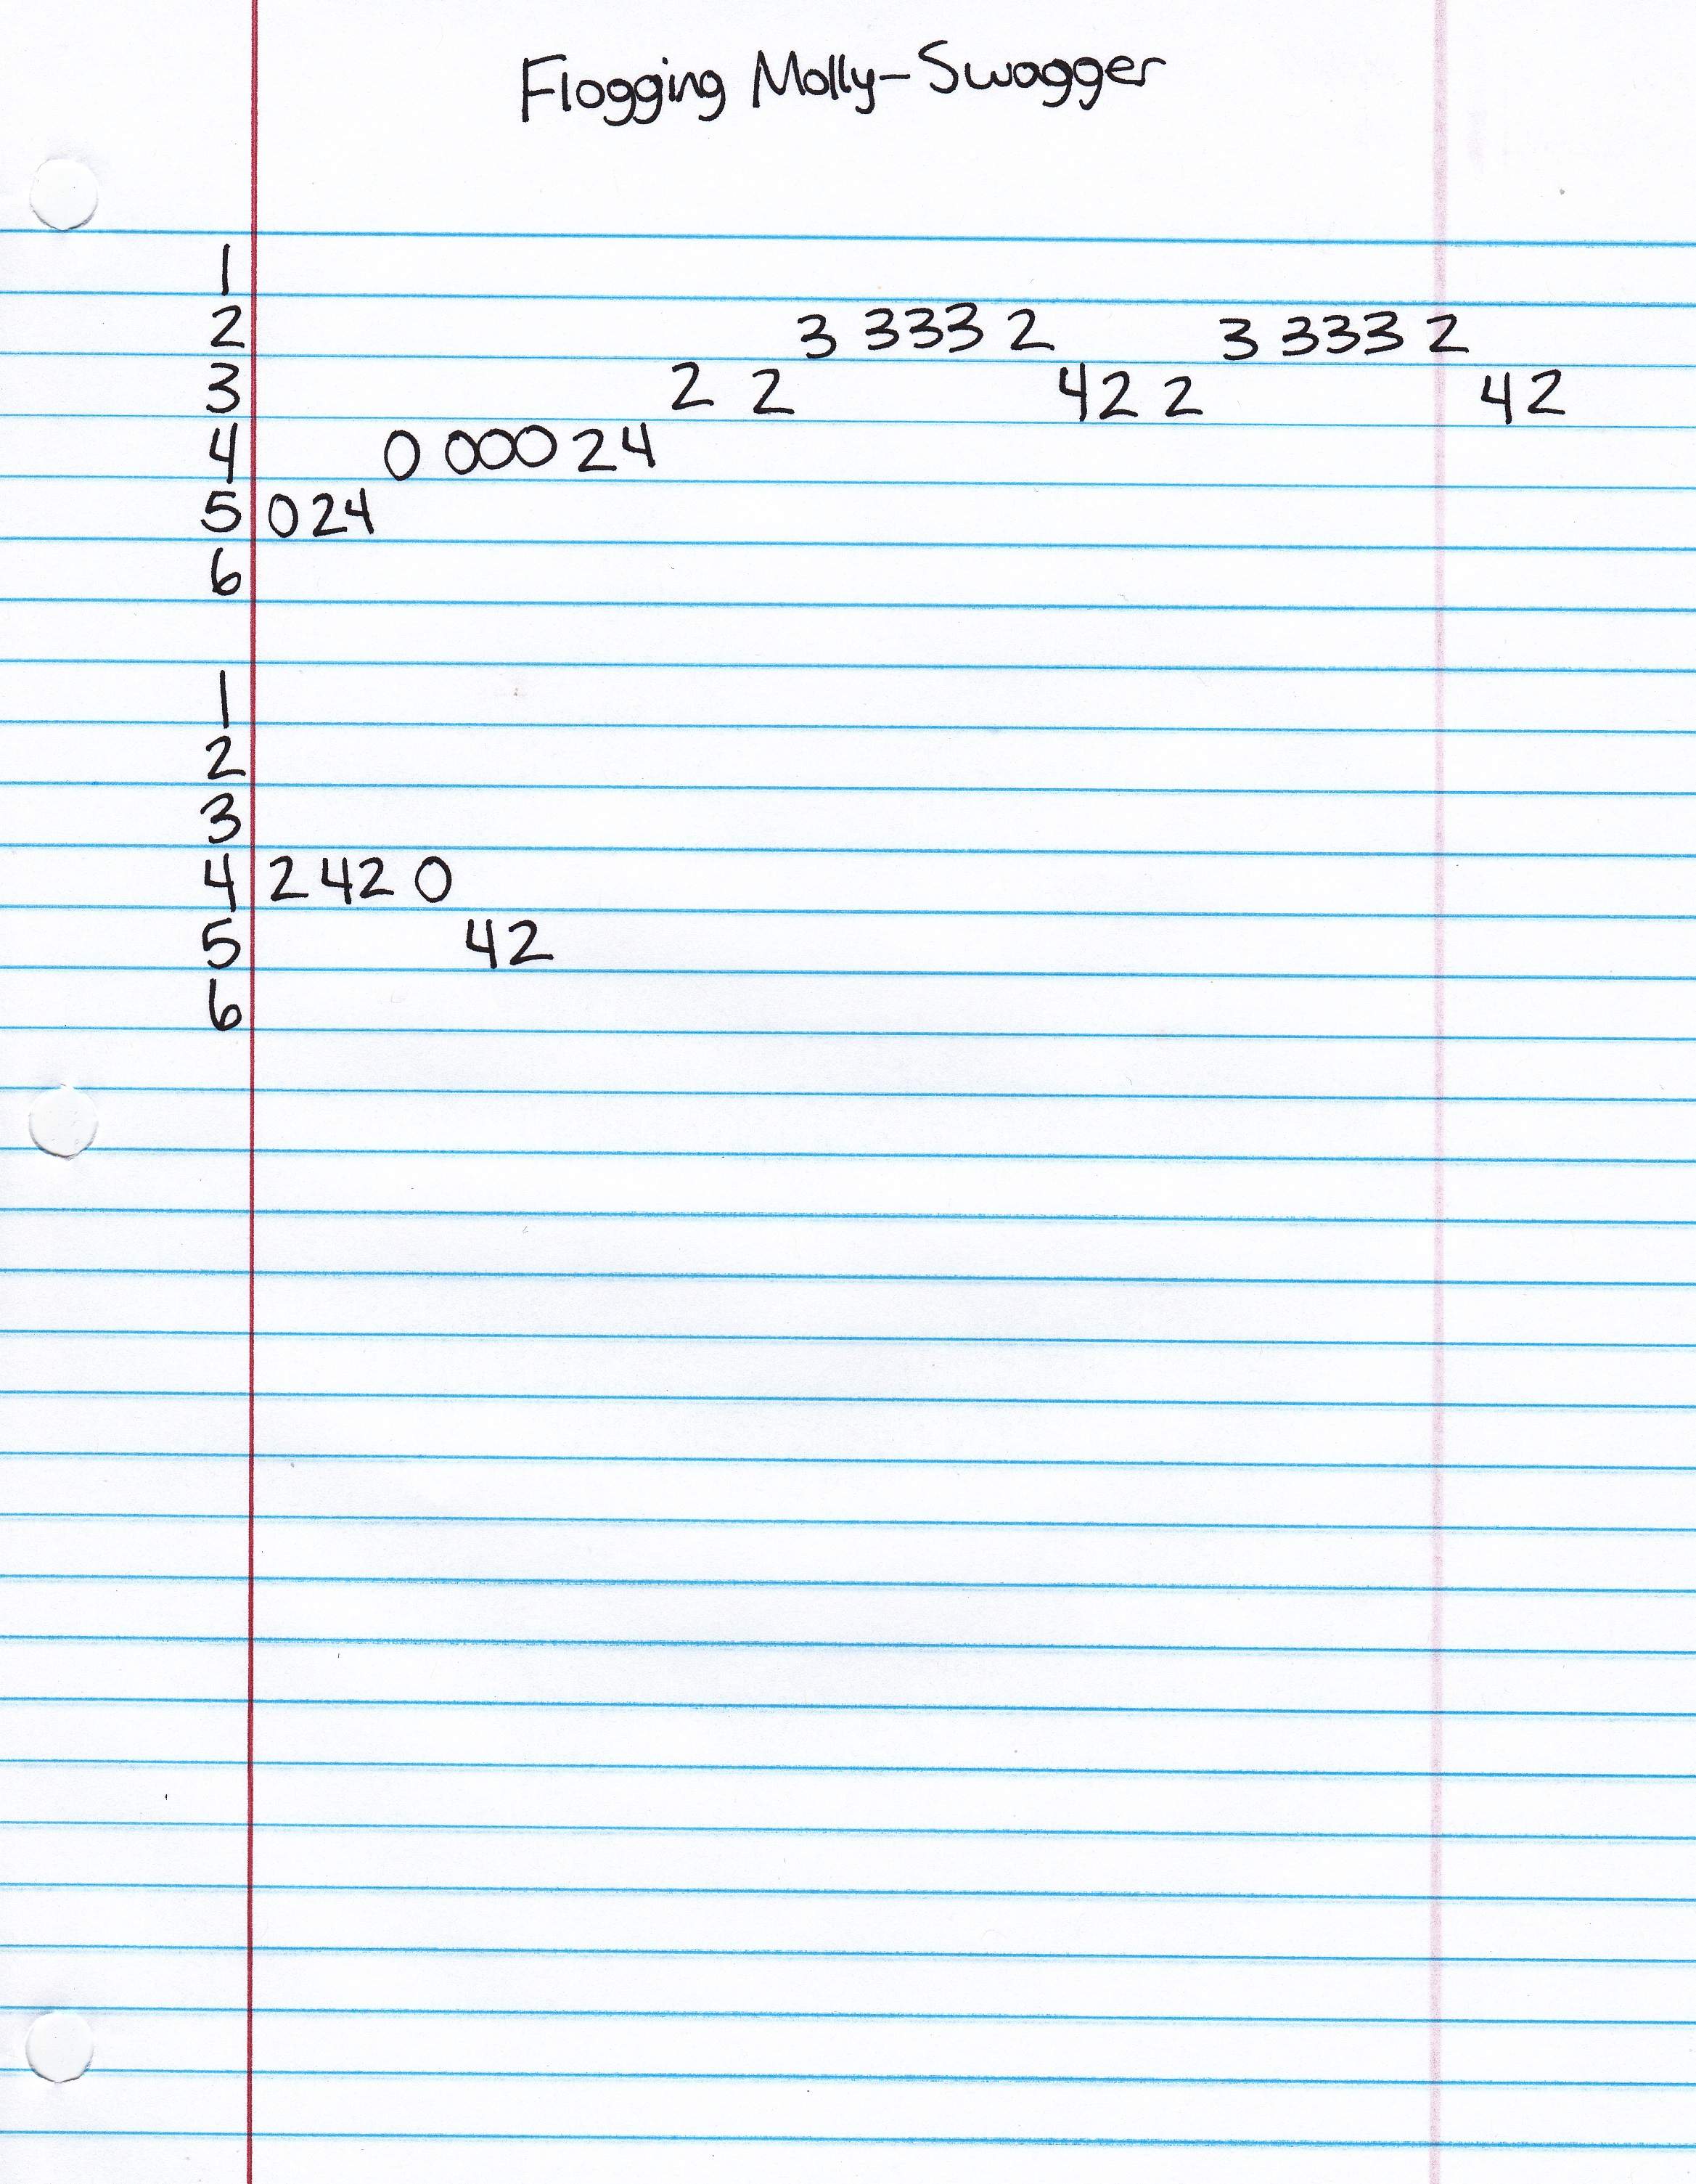 Flogging Molly-Swagger
1
2 3 333 2 3 333 2
3 2 2 42 2 42
4 0 000 24
5 024
6
1
2
3
4 2 42 0
5 42
6